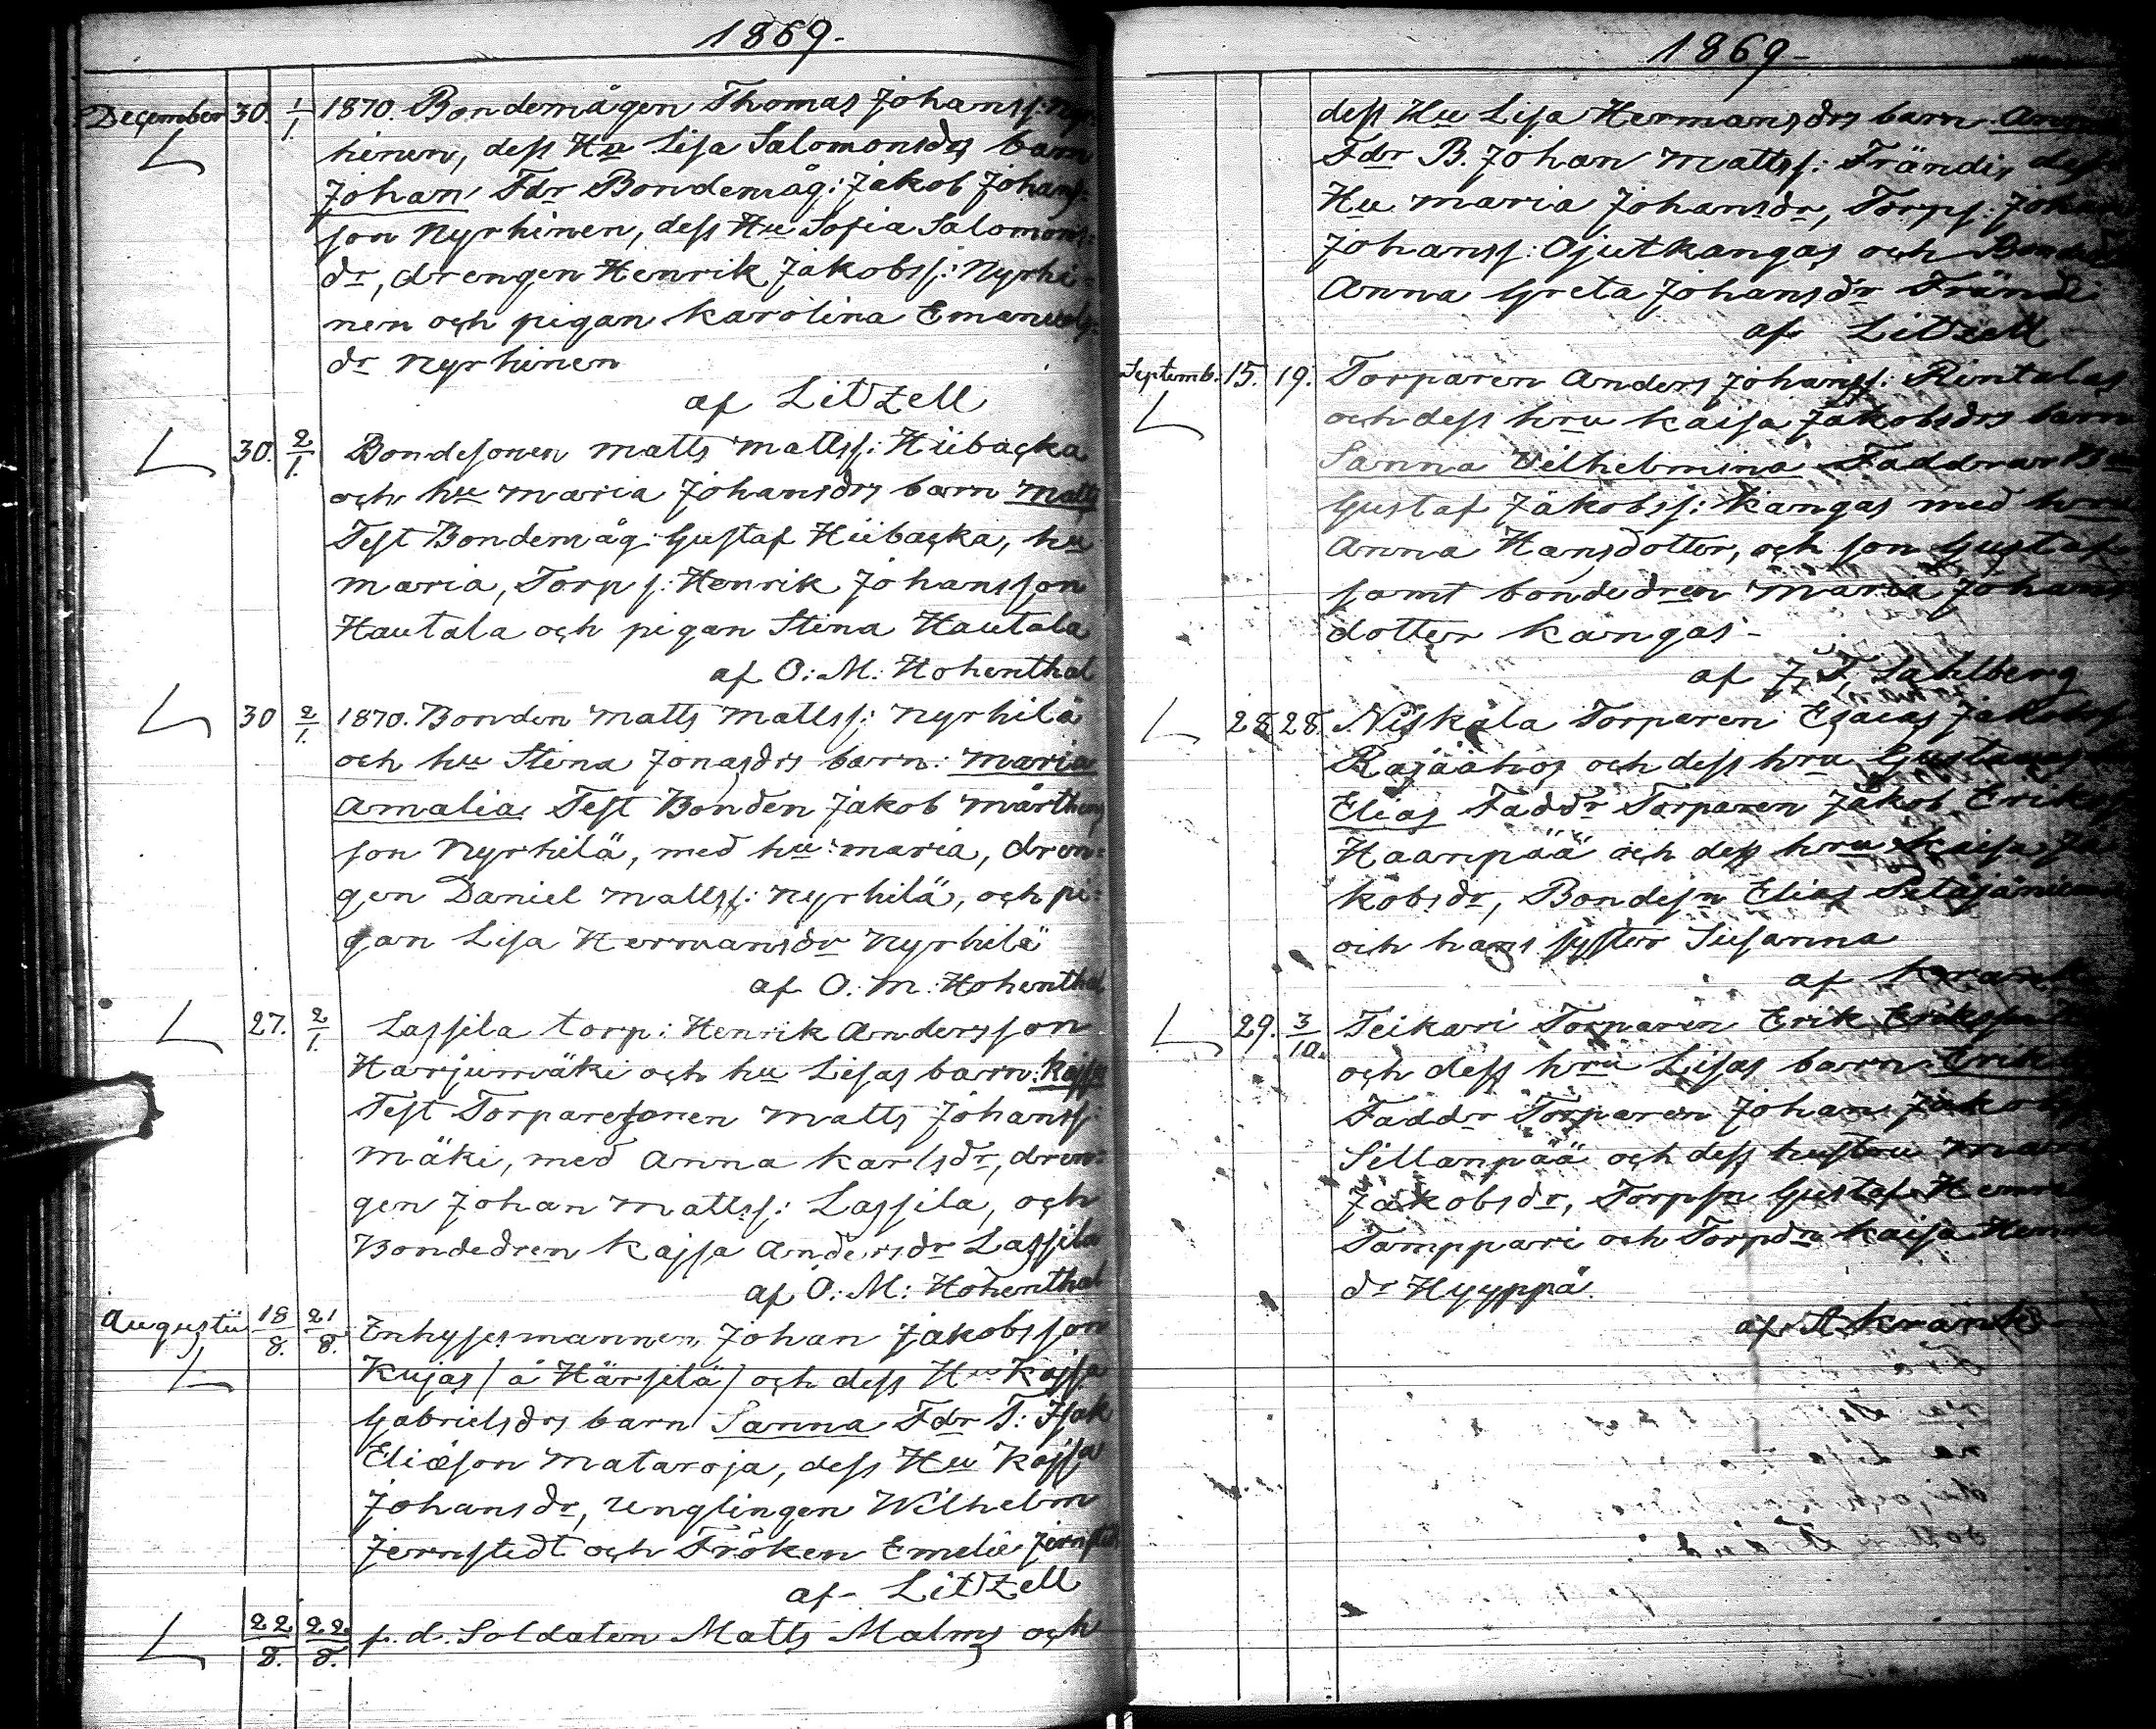 1869.
December 30. 1/1. 1870. Bondemågen Thomas Johanss: Nyr
hinen, dess Hu Lisa Salomonsdrs barn
Johan Fdr Bondemåg: Jakob Johans=
son Nyrhinen, dess Hu Sofia Salomons=
dr, drengen Henrik Jakobss: Nyrhi=
nen och pigan Karolina Emanuels
dr Nyrhinen
af Litzell
30. 2/1. Bondesonen Matts Mattss: Hiibacka
och hu Maria Johansdrs barn Matts
Test Bondemåg: Gustaf Hiibacka, hu
Maria, Torps: Henrik Johansson
Hautala och pigan Stina Hautala
af O: M: Hohenthal
30 2/1. 1870. Bonden Matts Mattss: Nyrhilä
och hu Stina Jonasdrs barn: Maria
Amalia Test Bonden Jakob Mårthens
son Nyrhilä, med hu: Maria, dren=
gen Daniel Mattss: Nyrhilä, och pi=
gan Lisa Hermansdr Nyrhilä
af O. M. Hohenthal
27. 2/1. Lassila torp: Henrik Andersson
Harjumäki och hu Lisas barn: Kajsa
Test Torparesonen Matts Johanss:
Mäki, med Anna Karlsdr, dren=
gen Johan Mattss: Lassila, och
Bondedren Kajsa Andersdr Lassila
af O: M: Hohenthal
Augustii 18/8. 21/8. Inhysesmannen Johan Jakobsson
Kujas / å Härsilä / och dess Hu Kajsa
Gabrielsdrs barn Sanna Fdr T: Isak
Eliæson Mataroja, dess Hu Kajsa
Johansdr, Unglingen Wilhelm
Jernstedt och Fröken Emelie Jernstedt
af Litzell
22/8. 22/8. f. d. Soldaten Matts Malms och
1869.
dess Hu Lisa Hermansdrs barn
Fdr B. Johan Mattss: Frändi, dess
Hu Maria Johansdr, Torps: Johan
Johanss: Ojutkangas och
Anna Greta Johansdr Frändi
af Litzell
Septemb. 15. 19. Torparen Anders Johanss: Rintalas
och dess hru Kaisa Jakobsdrs barn
Sanna Vilhelmina Faddrar
Gustaf Jakobss: Kangas med hru
Anna Hansdotter, och son Gustaf
samt bondedren Maria Johans
dotter Kangas
af J. F. Sahlberg
28. 28. Niskala Torparen Esaias Jakobss
Rajäähos och dess hru Gustavas
Elias Faddr Torparen Jakob Eriks
Haanpää och dess hru Kaisa Ja
kobsdr, Bondesn Elias
och hans syster Susanna
af Krank
29. 3/10. Teikari Torparen Erik Eriksson
och dess hru Lisas barn Erik
Faddr Torparen Johan Jakobs
Sillanpää och dess hustru Maria
Jakobsdr, Torpsn Gustaf Henr
Tamppari och Torpdn Kaisa Henr
dr Hyyppä.
af A Krank